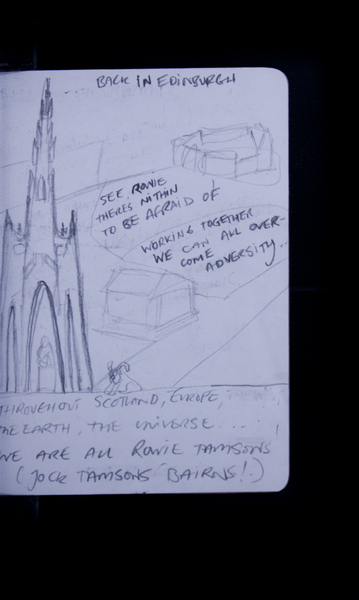 BACK IN EDINBURGH
SEE, ROWIE
THERES NITHIN
TO BE AFRAID OF
WORKING TOGETHER
WE CAN ALL OVER-
COME ADVERSITY...
THROUGHOUT SCOTLAND, EUROPE,
THE EARTH, THE UNIVERSE....
WE ARE ALL ROWIE TAMSONS
(JOCK TAMSONS BAIRNS!)